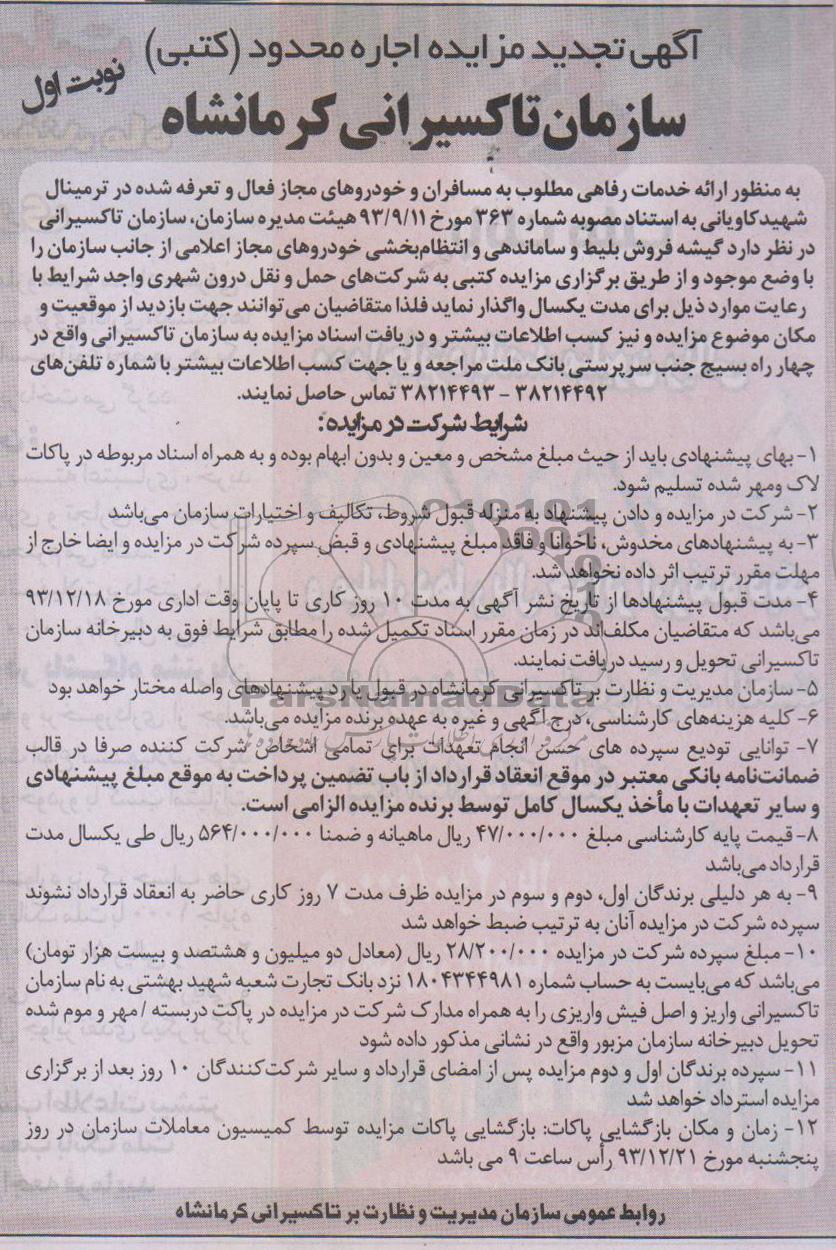 آگهی تجدید مزایده اجاره محدود (کتبی)
نوبت اول
سازمان تاکسیرانی کرمانشاه
به منظور ارائه خدمات رفاهی مطلوب به مسافران و خودروهای مجاز فعال و تعرفه شده در ترمینال
شهید کاویانی به استناد مصوبه شماره ۳۶۳ مورخ ۹۳/۹/۱۱ هیئت مدیره سازمان، سازمان تاکسیرانی
در نظر دارد گیشه فروش بلیط و ساماندهی و انتظام‌بخشی خودروهای مجاز اعلامی از جانب سازمان را
با وضع موجود و از طریق برگزاری مزایده کتبی به شرکت‌های حمل و نقل درون شهری واجد شرایط با
رعایت موارد ذیل برای مدت یکسال واگذار نماید فلذا متقاضیان می‌توانند جهت بازدید از موقعیت و
مکان موضوع مزایده و نیز کسب اطلاعات بیشتر و دریافت اسناد مزایده به سازمان تاکسیرانی واقع در
چهار راه بسیج جنب سرپرستی بانک ملت مراجعه و یا جهت کسب اطلاعات بیشتر با شماره تلفن‌های
۳۸۲۱۴۴۹۲ - ۳۸۲۱۴۴۹۳ تماس حاصل نمایند.
شرایط شرکت در مزایده:
۱- بهای پیشنهادی باید از حیث مبلغ مشخص و معین و بدون ابهام بوده و به همراه اسناد مربوطه در پاکات
لاک ومهر شده تسلیم شود.
۲- شرکت در مزایده و دادن پیشنهاد به منزله قبول شروط، تکالیف و اختیارات سازمان می‌باشد
۳- به پیشنهادهای مخدوش، ناخوانا و فاقد مبلغ پیشنهادی و قبض سپرده شرکت در مزایده و ایضا خارج از
مهلت مقرر ترتیب اثر داده نخواهد شد.
۴- مدت قبول پیشنهادها از تاریخ نشر آگهی به مدت ۱۰ روز کاری تا پایان وقت اداری مورخ ۹۳/۱۲/۱۸
می‌باشد که متقاضیان مکلف‌اند در زمان مقرر اسناد تکمیل شده را مطابق شرایط فوق به دبیرخانه سازمان
تاکسیرانی تحویل و رسید دریافت نمایند.
۵- سازمان مدیریت و نظارت بر تاکسیرانی کرمانشاه در قبول یا رد پیشنهادهای واصله مختار خواهد بود
ParsNamadData
۶- کلیه هزینه‌های کارشناسی، درج آگهی و غیره به عهده برنده مزایده می‌باشد.
۷- توانایی تودیع سپرده های حسن انجام تعهدات برای تمامی اشخاص شرکت کننده صرفا در قالب
ضمانت‌نامه بانکی معتبر در موقع انعقاد قرارداد از باب تضمین پرداخت به موقع مبلغ پیشنهادی
و سایر تعهدات با مأخذ یکسال کامل توسط برنده مزایده الزامی است.
۸- قیمت پایه کارشناسی مبلغ ۴۷/۰۰۰/۰۰۰ ریال ماهیانه و ضمنا ۵۶۴/۰۰۰/۰۰۰ ریال طی یکسال مدت
قرارداد می‌باشد
۹- به هر دلیلی برندگان اول، دوم و سوم در مزایده ظرف مدت ۷ روز کاری حاضر به انعقاد قرارداد نشوند
سپرده شرکت در مزایده آنان به ترتیب ضبط خواهد شد
۱۰- مبلغ سپرده شرکت در مزایده ۲۸/۲۰۰/۰۰۰ ریال (معادل دو میلیون و هشتصد و بیست هزار تومان)
می‌باشد که می‌بایست به حساب شماره ۱۸۰۴۳۴۴۹۸۱ نزد بانک تجارت شعبه شهید بهشتی به نام سازمان
تاکسیرانی واریز و اصل فیش واریزی را به همراه مدارک شرکت در مزایده در پاکت دربسته / مهر و موم شده
تحویل دبیرخانه سازمان مزبور واقع در نشانی مذکور داده شود
۱۱- سپرده برندگان اول و دوم مزایده پس از امضای قرارداد و سایر شرکت‌کنندگان ۱۰ روز بعد از برگزاری
مزایده استرداد خواهد شد
۱۲- زمان و مکان بازگشایی پاکات: بازگشایی پاکات مزایده توسط کمیسیون معاملات سازمان در روز
پنجشنبه مورخ ۹۳/۱۲/۲۱ رأس ساعت ۹ می باشد
روابط عمومی سازمان مدیریت و نظارت بر تاکسیرانی کرمانشاه